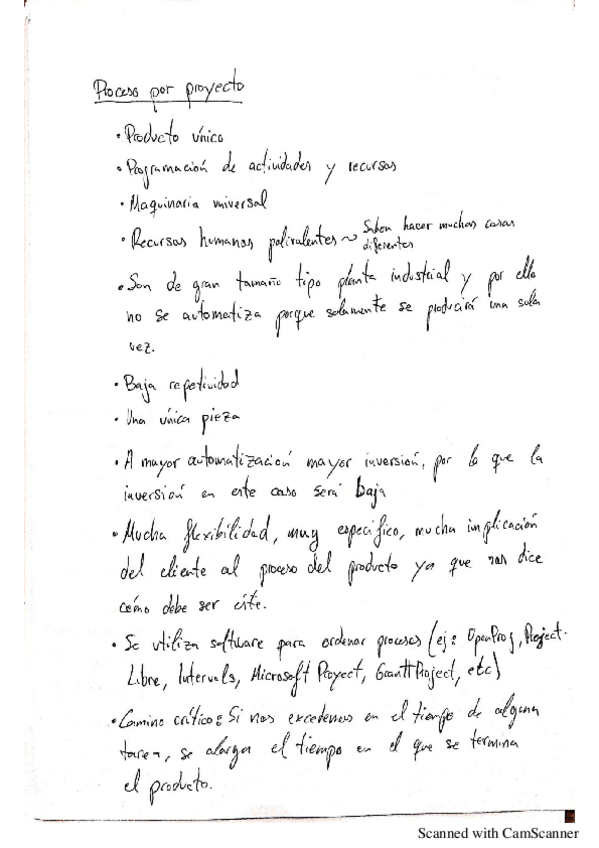 Proceso por proyecto
• Producto único
• Programación de actividades y recursos
• Maquinaria universal
• Recursos humanos polivalentes ~ Saben hacer muchas cosas
diferentes
• Son de gran tamaño tipo planta industrial y por ello
no se automatiza porque solamente se producirá una sola
vez.
• Baja repetividad
• Una única pieza
• A mayor automatización mayor inversión, por lo que la
inversión en este caso será baja
• Mucha flexibilidad, muy específico, mucha implicación
del cliente al proceso del producto ya que nos dice
cómo debe ser éste.
• Se utiliza software para ordenar procesos (ej: OpenProj, Project-
Libre, Intervals, Microsoft Proyect, GranttProject, etc)
• Camino crítico: Si nos excedemos en el tiempo de alguna
tarea, se alarga el tiempo en el que se termina
el producto.
Scanned with CamScanner